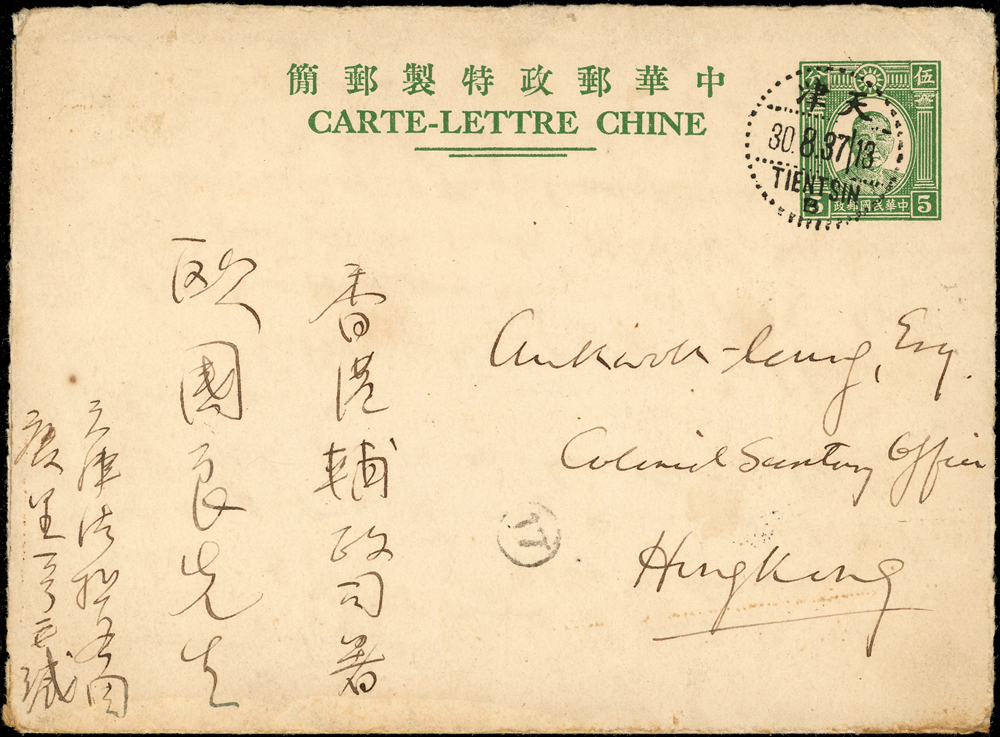 簡郵製特政郵華中
CARTE-LETTRE CHINE
分 伍
政郵國民華中
5 5
津天
30.8.37 13
TIENTSIN
B
香港輔政司署
歐國良先生
天津法租界
Au Kwok-leung, Esq.
Colonial Secretary Office
HongKong
17